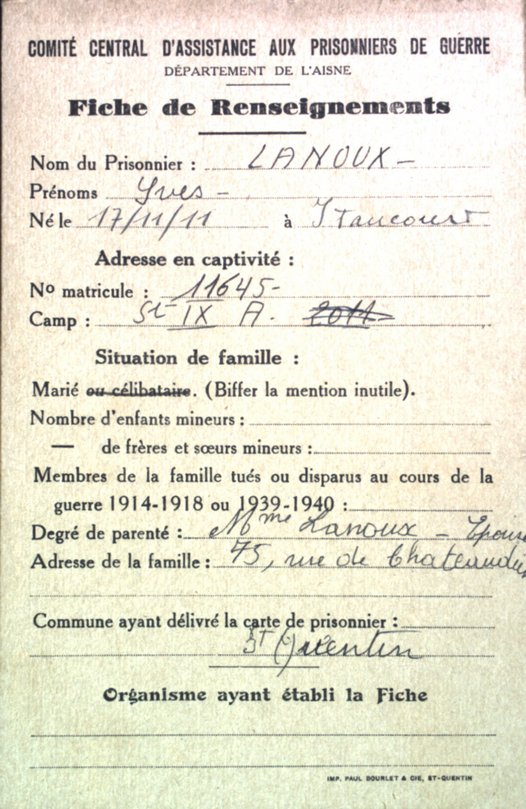 COMITÉ CENTRAL D'ASSISTANCE AUX PRISONNIERS DE GUERRE
DÉPARTEMENT DE L'AISNE
Fiche de Renseignements
Nom du Prisonnier : LANOUX –
Prénoms Yves –
Né le 17/11/11 à Itancourt
Adresse en captivité :
No matricule : 11645-
Camp : St IX A.
Situation de famille :
Marié ou célibataire. (Biffer la mention inutile).
Nombre d'enfants mineurs :
— de frères et sœurs mineurs :
Membres de la famille tués ou disparus au cours de la
guerre 1914-1918 ou 1939-1940 :
Degré de parenté : Mme Lanoux – Epouse
Adresse de la famille : 75, rue de Chateaudun
Commune ayant délivré la carte de prisonnier :
St Quentin
Organisme ayant établi la Fiche
IMP. PAUL BOURLET & CIE, ST-QUENTIN